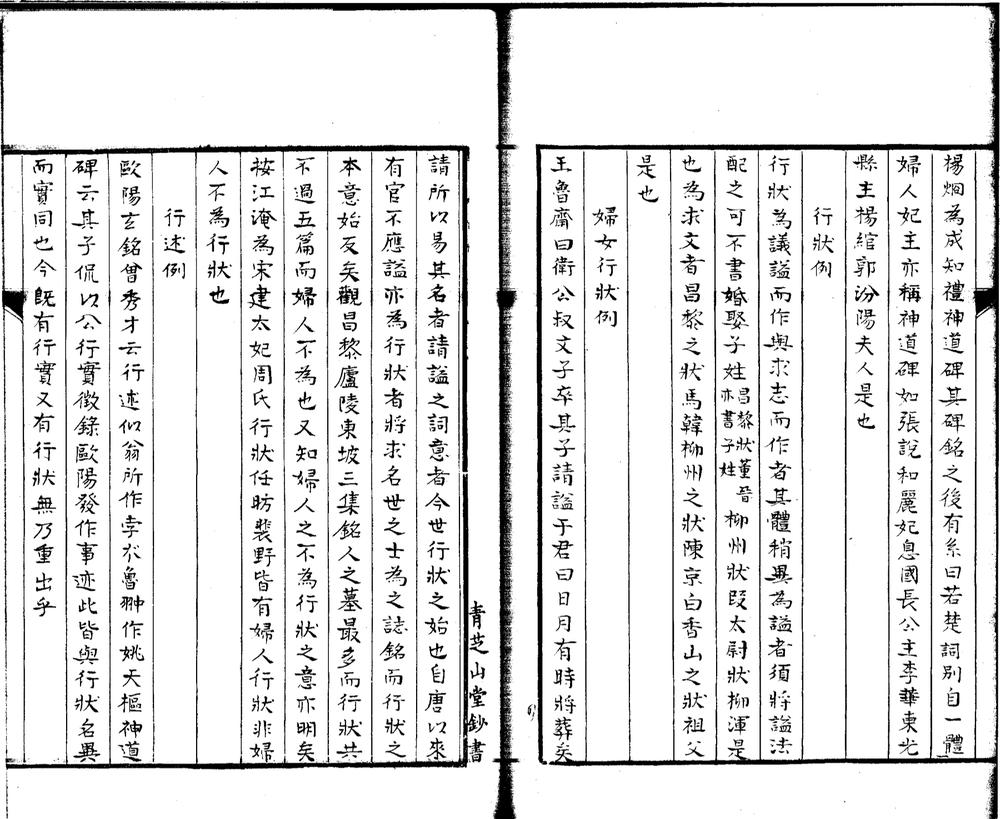 楊烱為成知禮神道碑其碑銘之後有系曰若楚詞別自一體
婦人妃主亦稱神道碑如張說和麗妃息國長公主李華東光
縣主楊綰郭汾陽夫人是也
行狀例
行狀為議謚而作與求志而作者其體稍異為謚者須將謚法
配之可不書婚娶子姓昌黎狀董晉亦書子姓柳州狀段太尉狀柳渾是
也為求文者昌黎之狀馬韓柳州之狀陳京白香山之狀祖父
是也
婦女行狀例
王魯齋曰衛公叔文子卒其子請謚于君曰日月有時將葬矣
請所以易其名者請謚之詞意者今世行狀之始也自唐以來
有官不應謚亦為行狀者將求名世之士為之誌銘而行狀之
本意始反矣觀昌黎廬陵東坡三集銘人之墓最多而行狀共
不過五篇而婦人不為也又知婦人之不為行狀之意亦明矣
按江淹為宋建太妃周氏行狀任昉裴野皆有婦人行狀非婦
人不為行狀也
行述例
歐陽玄銘曾秀才云行述似翁所作孛朮魯翀作姚天樞神道
碑云其子侃以公行實徵錄歐陽發作事迹此皆與行狀名異
而實同也今既有行實又有行狀無乃重出乎
青芝山堂鈔書